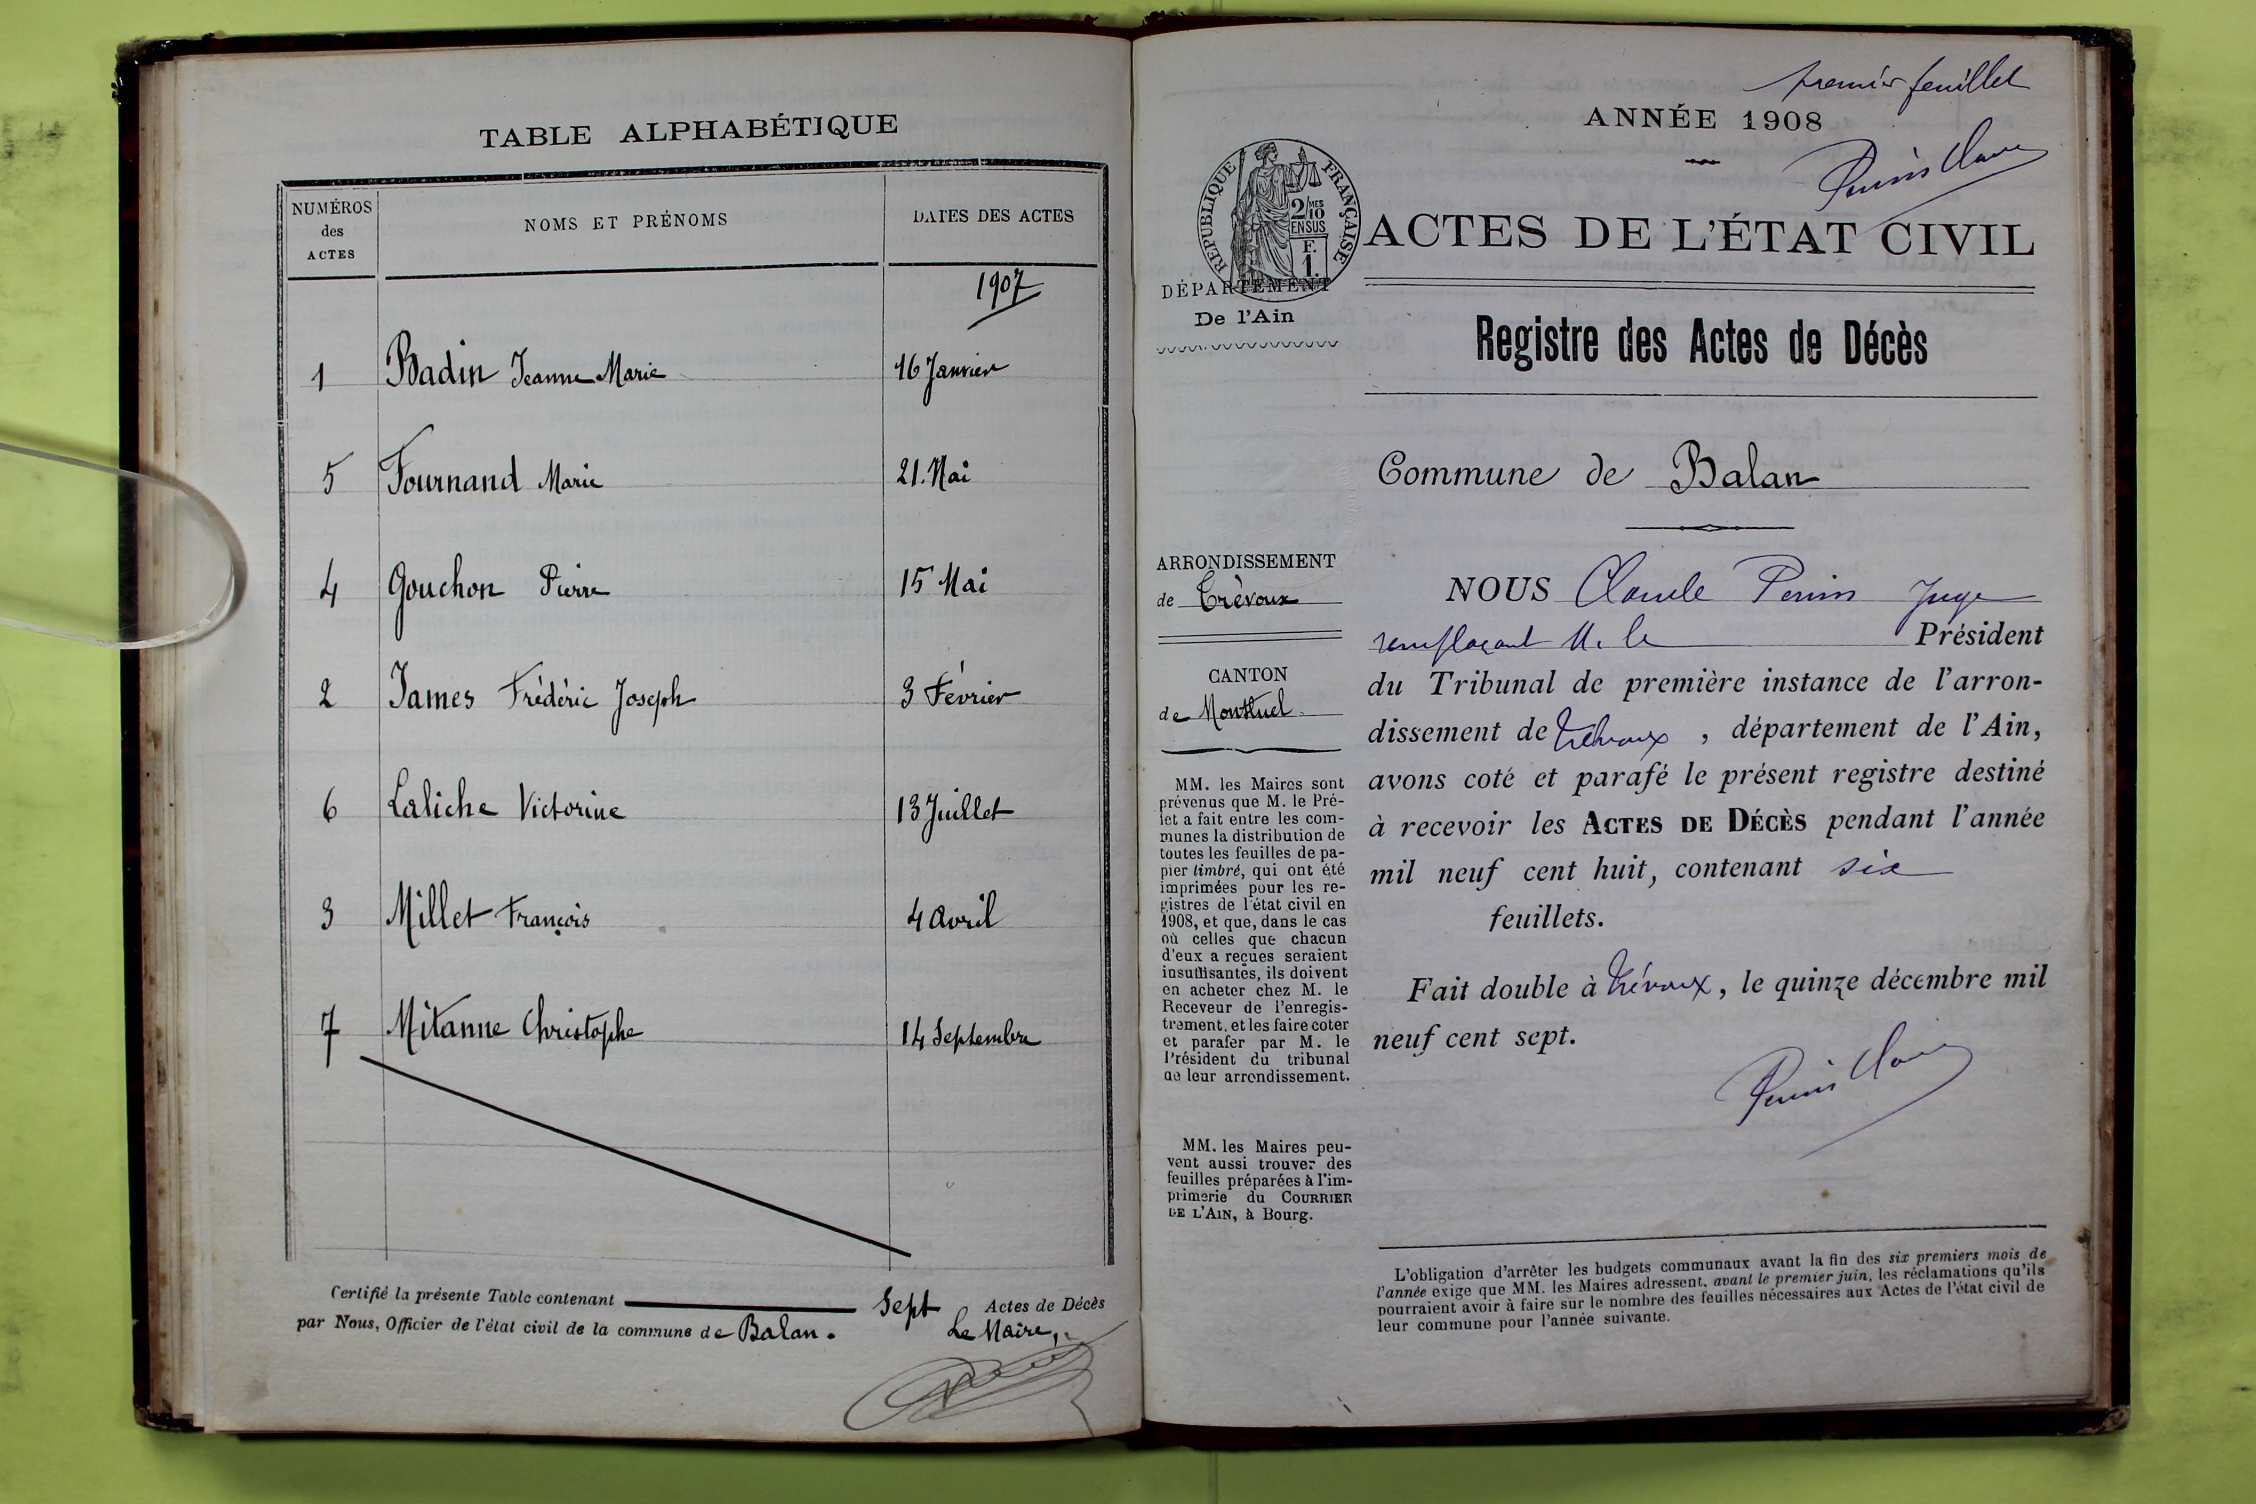 TABLE ALPHABÉTIQUE
NUMÉROS
des
ACTES
NOMS ET PRÉNOMS
DATES DES ACTES
1907
1 Badin Jeanne Marie 16 Janvier
5 Fournand Marie 21. Mai
4 Gouchon Pierre 15 Mai
2 James Frédéric Joseph 3 Février
6 Laliche Victorine 13 Juillet
3 Millet François 4 Avril
7 Mitanne Christophe 14 Septembre
Certifié la présente Table contenant Sept Actes de Décès
par Nous, Officier de l'état civil de la commune de Balan.
Le Maire,
premier feuillet
ANNÉE 1908
RÉPUBLIQUE FRANÇAISE
2/10 MES
EN SUS
F.
1.
ACTES DE L'ÉTAT CIVIL
DÉPARTEMENT
De l'Ain
Registre des Actes de Décès
Commune de Balan
ARRONDISSEMENT
de Trévoux
CANTON
de Montluel
MM. les Maires sont
prévenus que M. le Pré-
fet a fait entre les com-
munes la distribution de
toutes les feuilles de pa-
pier timbré, qui ont été
imprimées pour les re-
gistres de l'état civil en
1908, et que, dans le cas
où celles que chacun
d'eux a reçues seraient
insuffisantes, ils doivent
en acheter chez M. le
Receveur de l'enregis-
trement, et les faire coter
et parafer par M. le
Président du tribunal
de leur arrondissement.
MM. les Maires peu-
vent aussi trouver des
feuilles préparées à l'im-
primerie du COURRIER
DE L'AIN, à Bourg.
NOUS Claude Perrin Juge
remplaçant M. le Président
du Tribunal de première instance de l'arron-
dissement de Trévoux, département de l'Ain,
avons coté et parafé le présent registre destiné
à recevoir les ACTES DE DÉCÈS pendant l'année
mil neuf cent huit, contenant six
feuillets.
Fait double à Trévoux, le quinze décembre mil
neuf cent sept.
L'obligation d'arrêter les budgets communaux avant la fin des six premiers mois de
l'année exige que MM. les Maires adressent, avant le premier juin, les réclamations qu'ils
pourraient avoir à faire sur le nombre des feuilles nécessaires aux Actes de l'état civil de
leur commune pour l'année suivante.